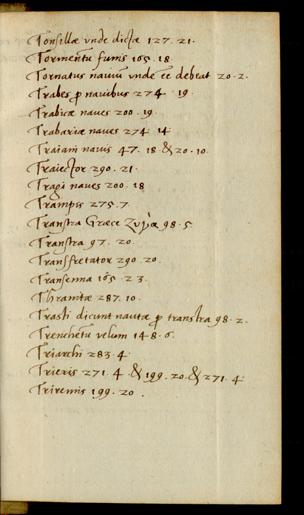 Tonsillæ unde dictæ 127. 21.
Tormentũ funis 165. 18
Tornatus navim unde eē debeat 20. 2.
Trabes p navibus 274 19.
Trabicæ naves 200. 19.
Trabariæ naves 274 14
Traiani navis 47. 18 & 20. 10.
Traiector 290. 21.
Tragi naves 200. 18
Trampis 275. 7.
Transtra Græce Ζυγὰ 98. 5
Transtra 97. 20.
Transfretator 290. 20.
Transenna 165. 23.
Thranitæ 287. 10.
Trasti dicunt nautæ p transtra 98. 2.
Trenchetũ velum 148. 6.
Triarchi 283. 4
Trieris 271. 4 & 199. 20. & 271. 4
Triremis 199. 20.